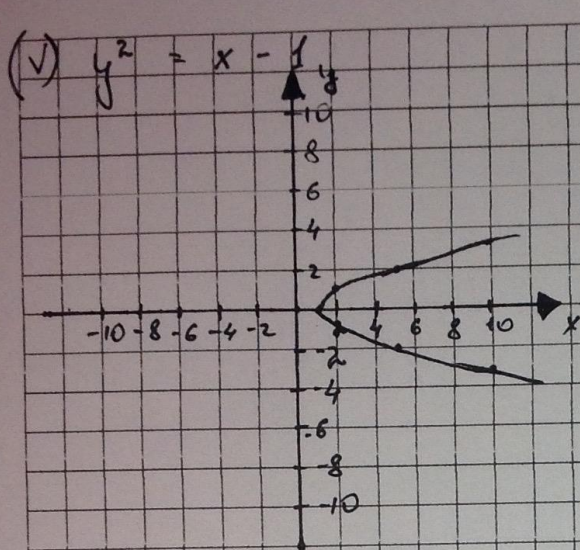 (v) y² = x - 1
y
10
8
6
4
2
-10 -8 -6 -4 -2 4 6 8 10 x
-2
-4
-6
-8
-10